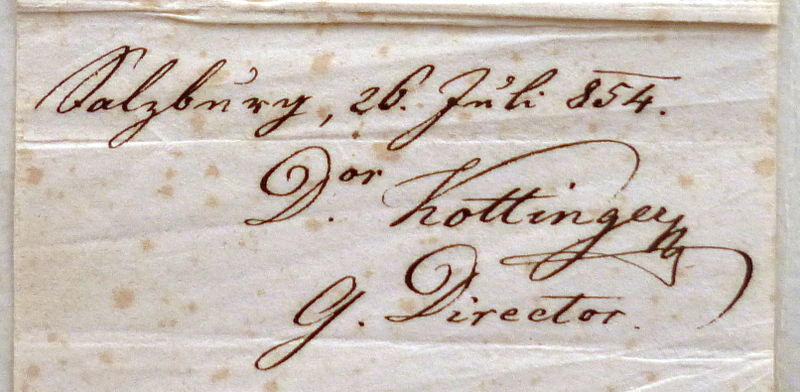 Salzburg, 26. Juli 854.
Dor. Kottinger
g. Director.